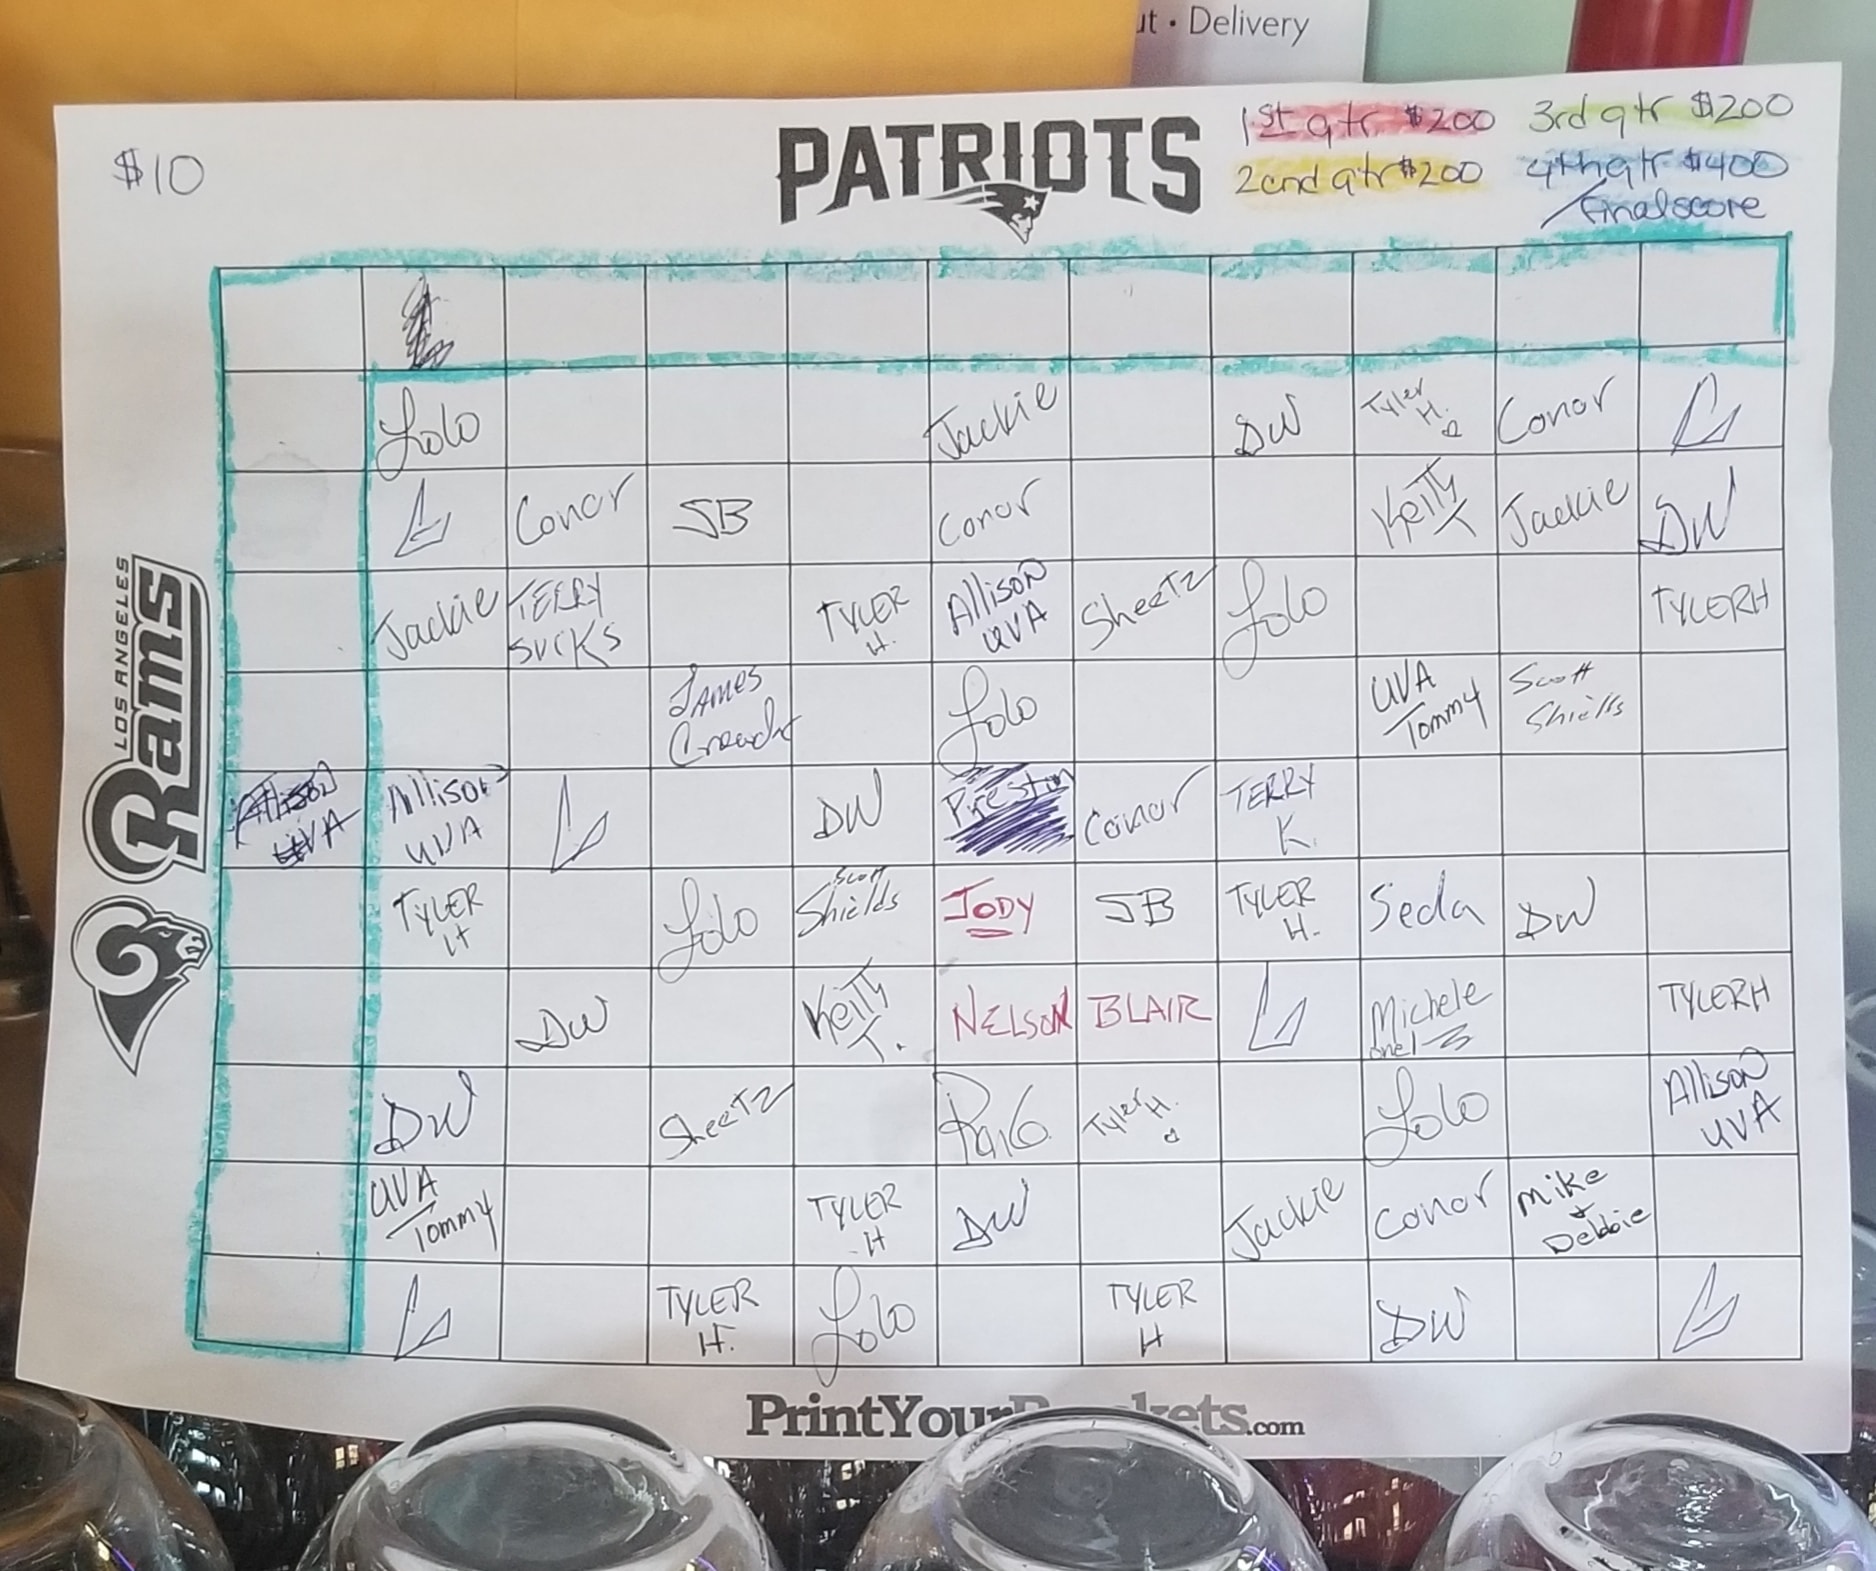 ut • Delivery
$10
PATRIOTS
1st qtr $200
3rd qtr $200
2cnd qtr $200
4th qtr $400
/final score
LOS ANGELES
Rams
Lolo
Jackie
DW
Tyler
H.
Conor
Conor
SB
Conor
Keith
T
Jackie
DW
Jackie
TERRY
SUCKS
TYLER
H.
Allison
UVA
SheeTz
Lolo
TYLER H
James
Lolo
UVA
Tommy
Scott
Shields
Allison
UVA
Allison
UVA
DW
Preston
Conor
TERRY
K.
TYLER
H
Lolo
Scott
Shields
JODY
SB
TYLER
H.
Seda
DW
DW
Keith
T.
NELSON
BLAIR
Michele
TYLER H
DW
SheeTz
Tyler H.
Lolo
Allison
UVA
UVA
Tommy
TYLER
H
DW
Jackie
Conor
Mike
+
Debbie
TYLER
H.
Lolo
TYLER
H
DW
PrintYour
kets.com